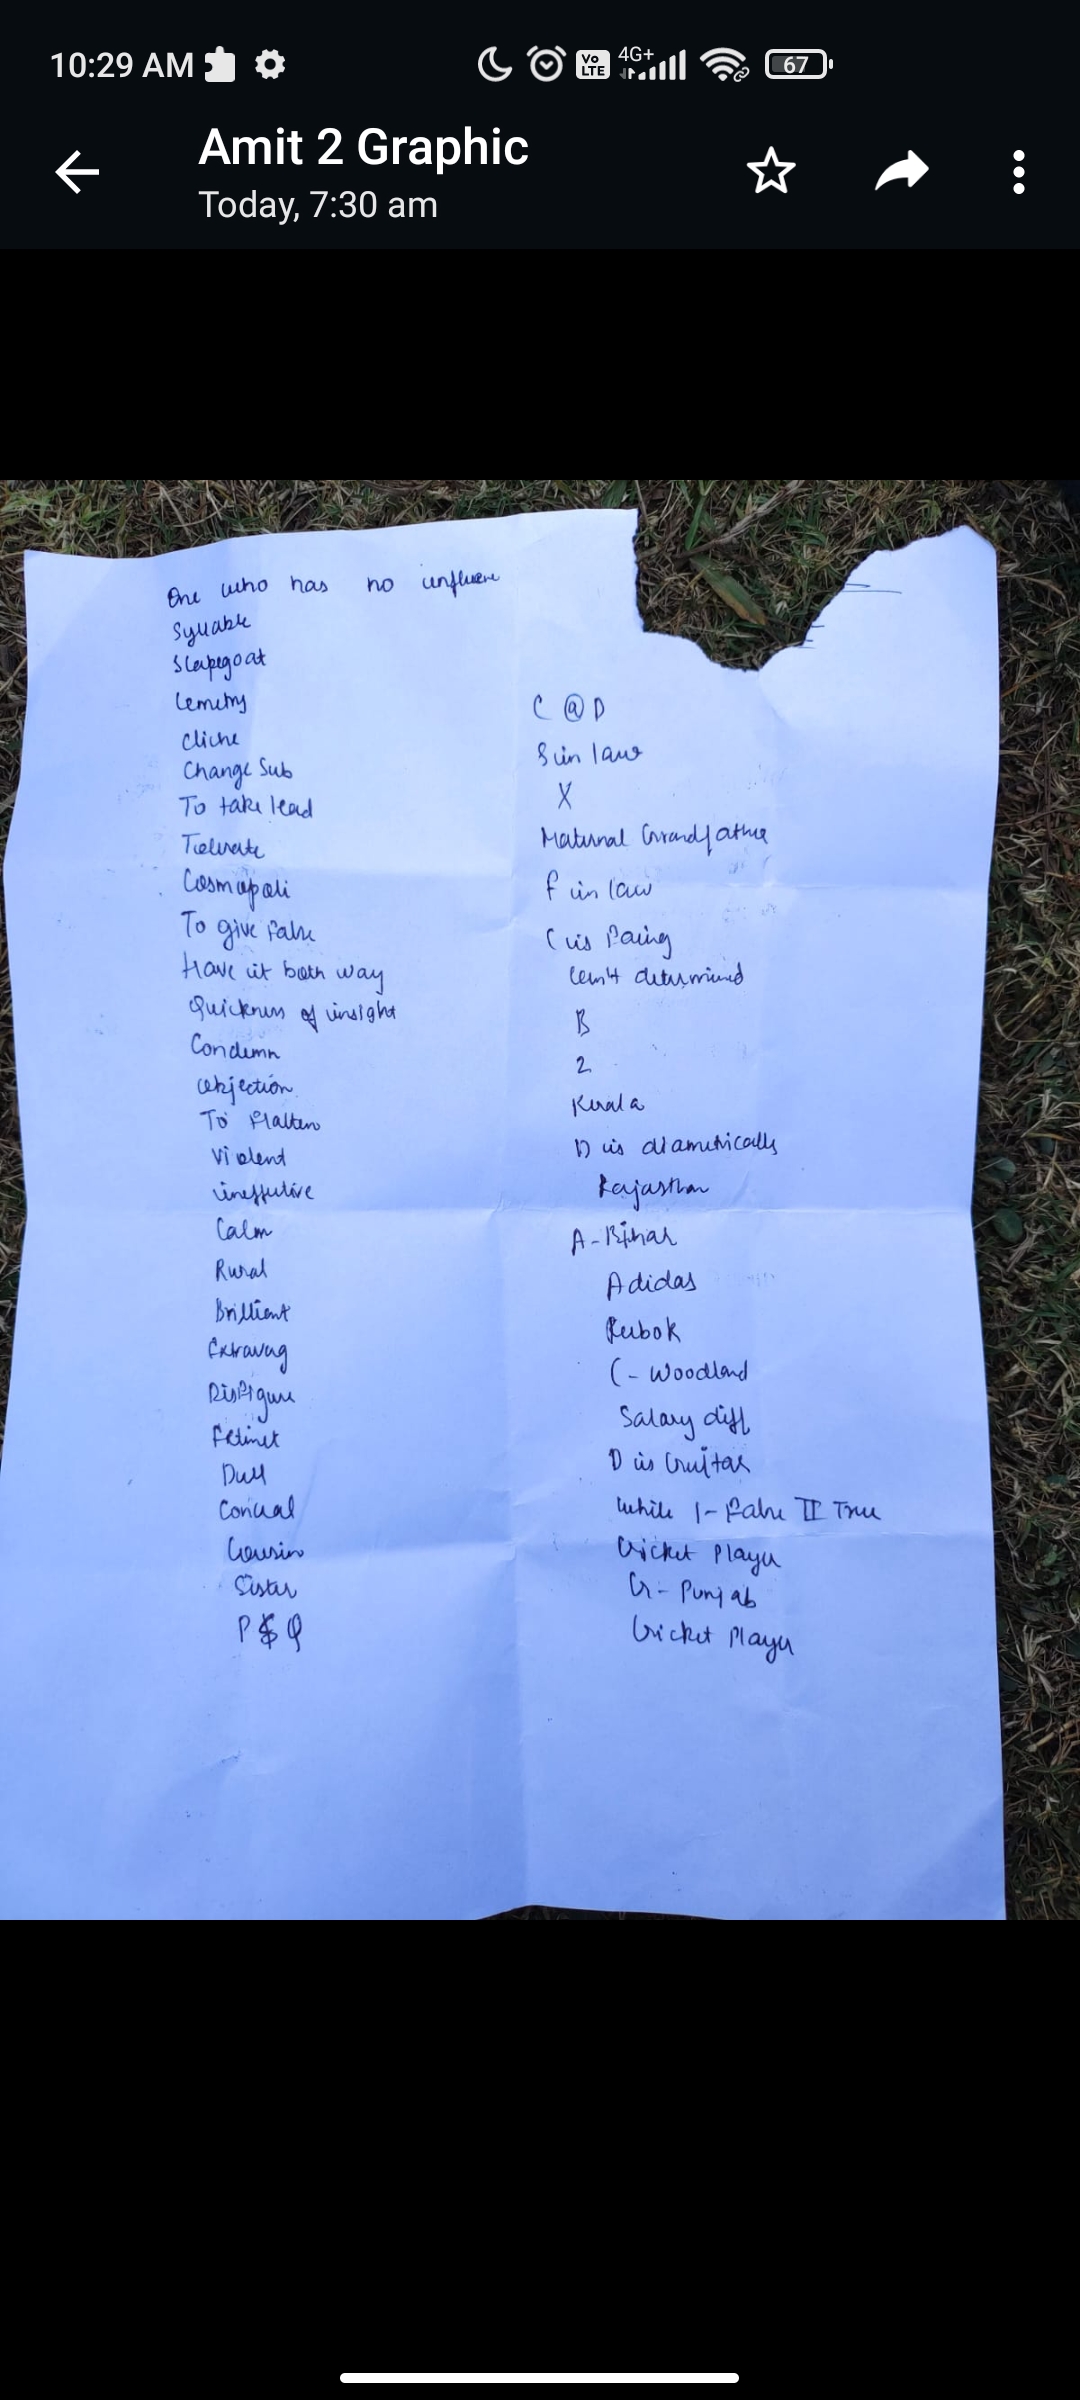 10:29 AM
Vo LTE 4G+ 67
Amit 2 Graphic
Today, 7:30 am
One who has no
Syllable
Scapegoat
Cliche
Change Sub
To take lead
Tolerate
Cosmopoli
To give false
Have it both way
Quickness of insight
Condemn
objection
To flatten
Violent
ineffective
Calm
Rural
Brillient
Extravag
Disfigure
Dull
Conceal
Cousin
Sister
P $ Q
C @ D
S in law
X
Maternal Grandfather
F in law
C is facing
determined
B
2
Kerala
D is diametrically
Rajasthan
A - Bihar
Adidas
Reebok
C - Woodland
Salary diff
D is Guitar
While I - False II True
Cricket Player
G - Punjab
Cricket Player